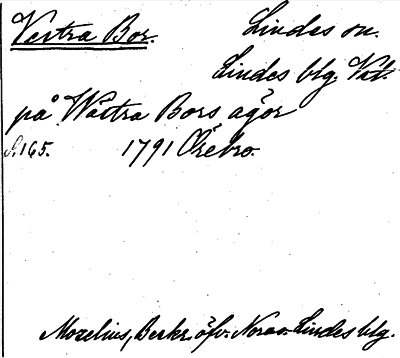 Vestra Bor. Lindes sn.
Lindes blg. Vät.
på Wästra Bors ägor
S. 165. 1791 Örebro.
Mozelius, Beskr. öfv. Nora o. Lindes blg.